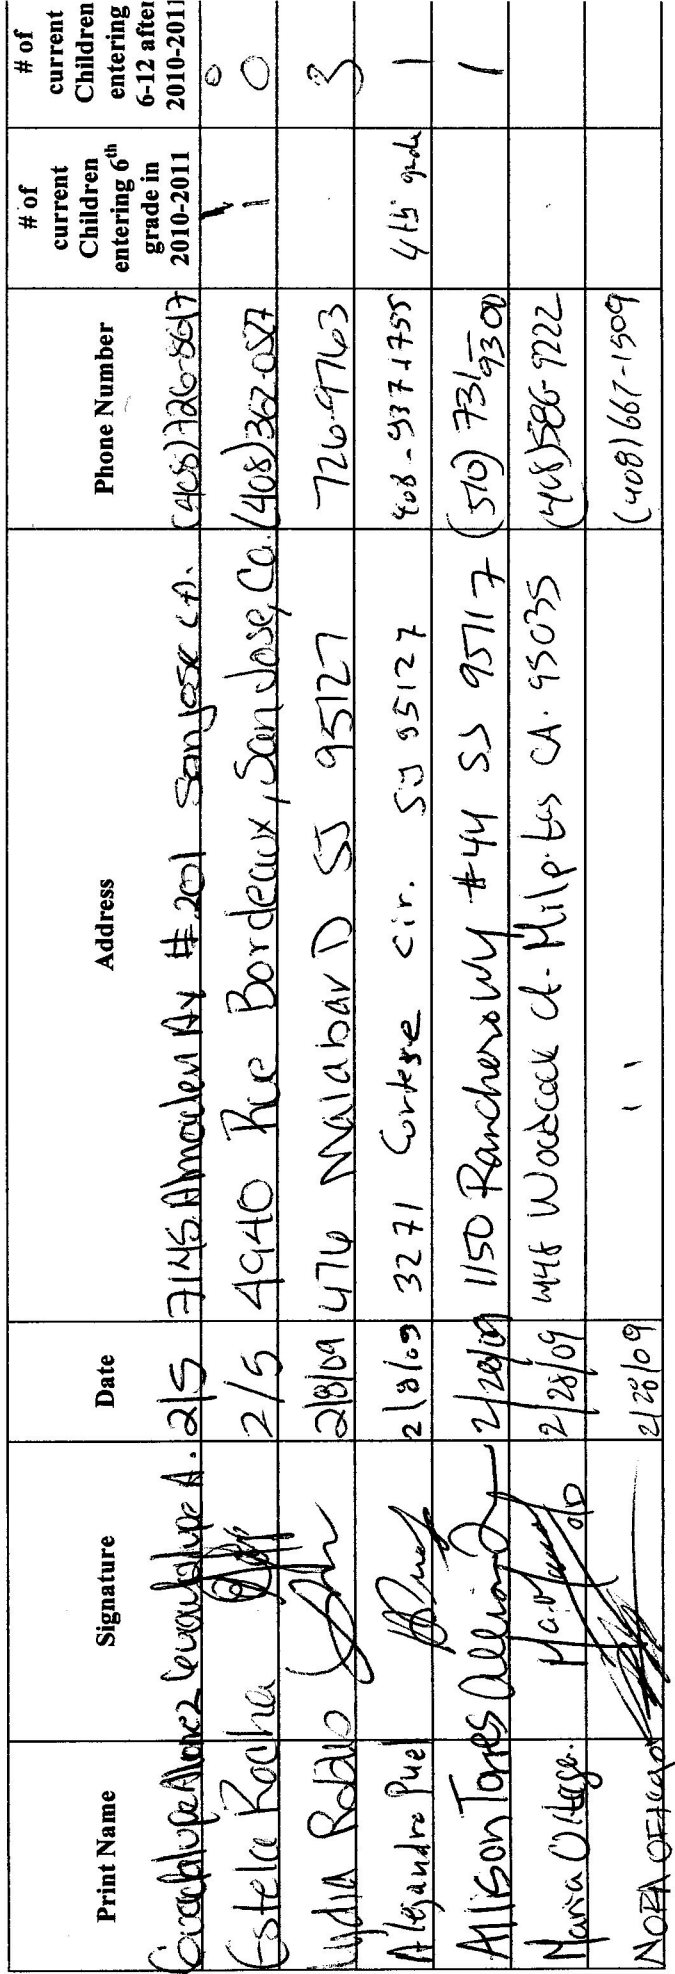 Print Name Signature Date Address Phone Number # of current Children entering 6th grade in 2010-2011 # of current Children entering 6-12 after 2010-2011
Guadalupe Guadalupe A. 2/5 #201 San Jose CA. (408)726-8617 1 0
Estela Rocha 2/5 4940 Rue Bordeaux, San Jose, Ca. 1 0
Lydia 2/8/09 476 Malabar D SJ 95127 726-9763 3
Alejandra 2/8/09 3271 Cortese Cir. SJ 95127 408-937-1755 4th grade 1
Allison Torres 2/28/09 1150 Ranchero Wy #44 SJ 95117 (510) 731 9300 1
Maria Ortega. 2/28/09 Woodcock Ct. Milpitas CA. 95035 (408)586-9222
NORA ORTEGA 2/28/09 '' (408)667-1509